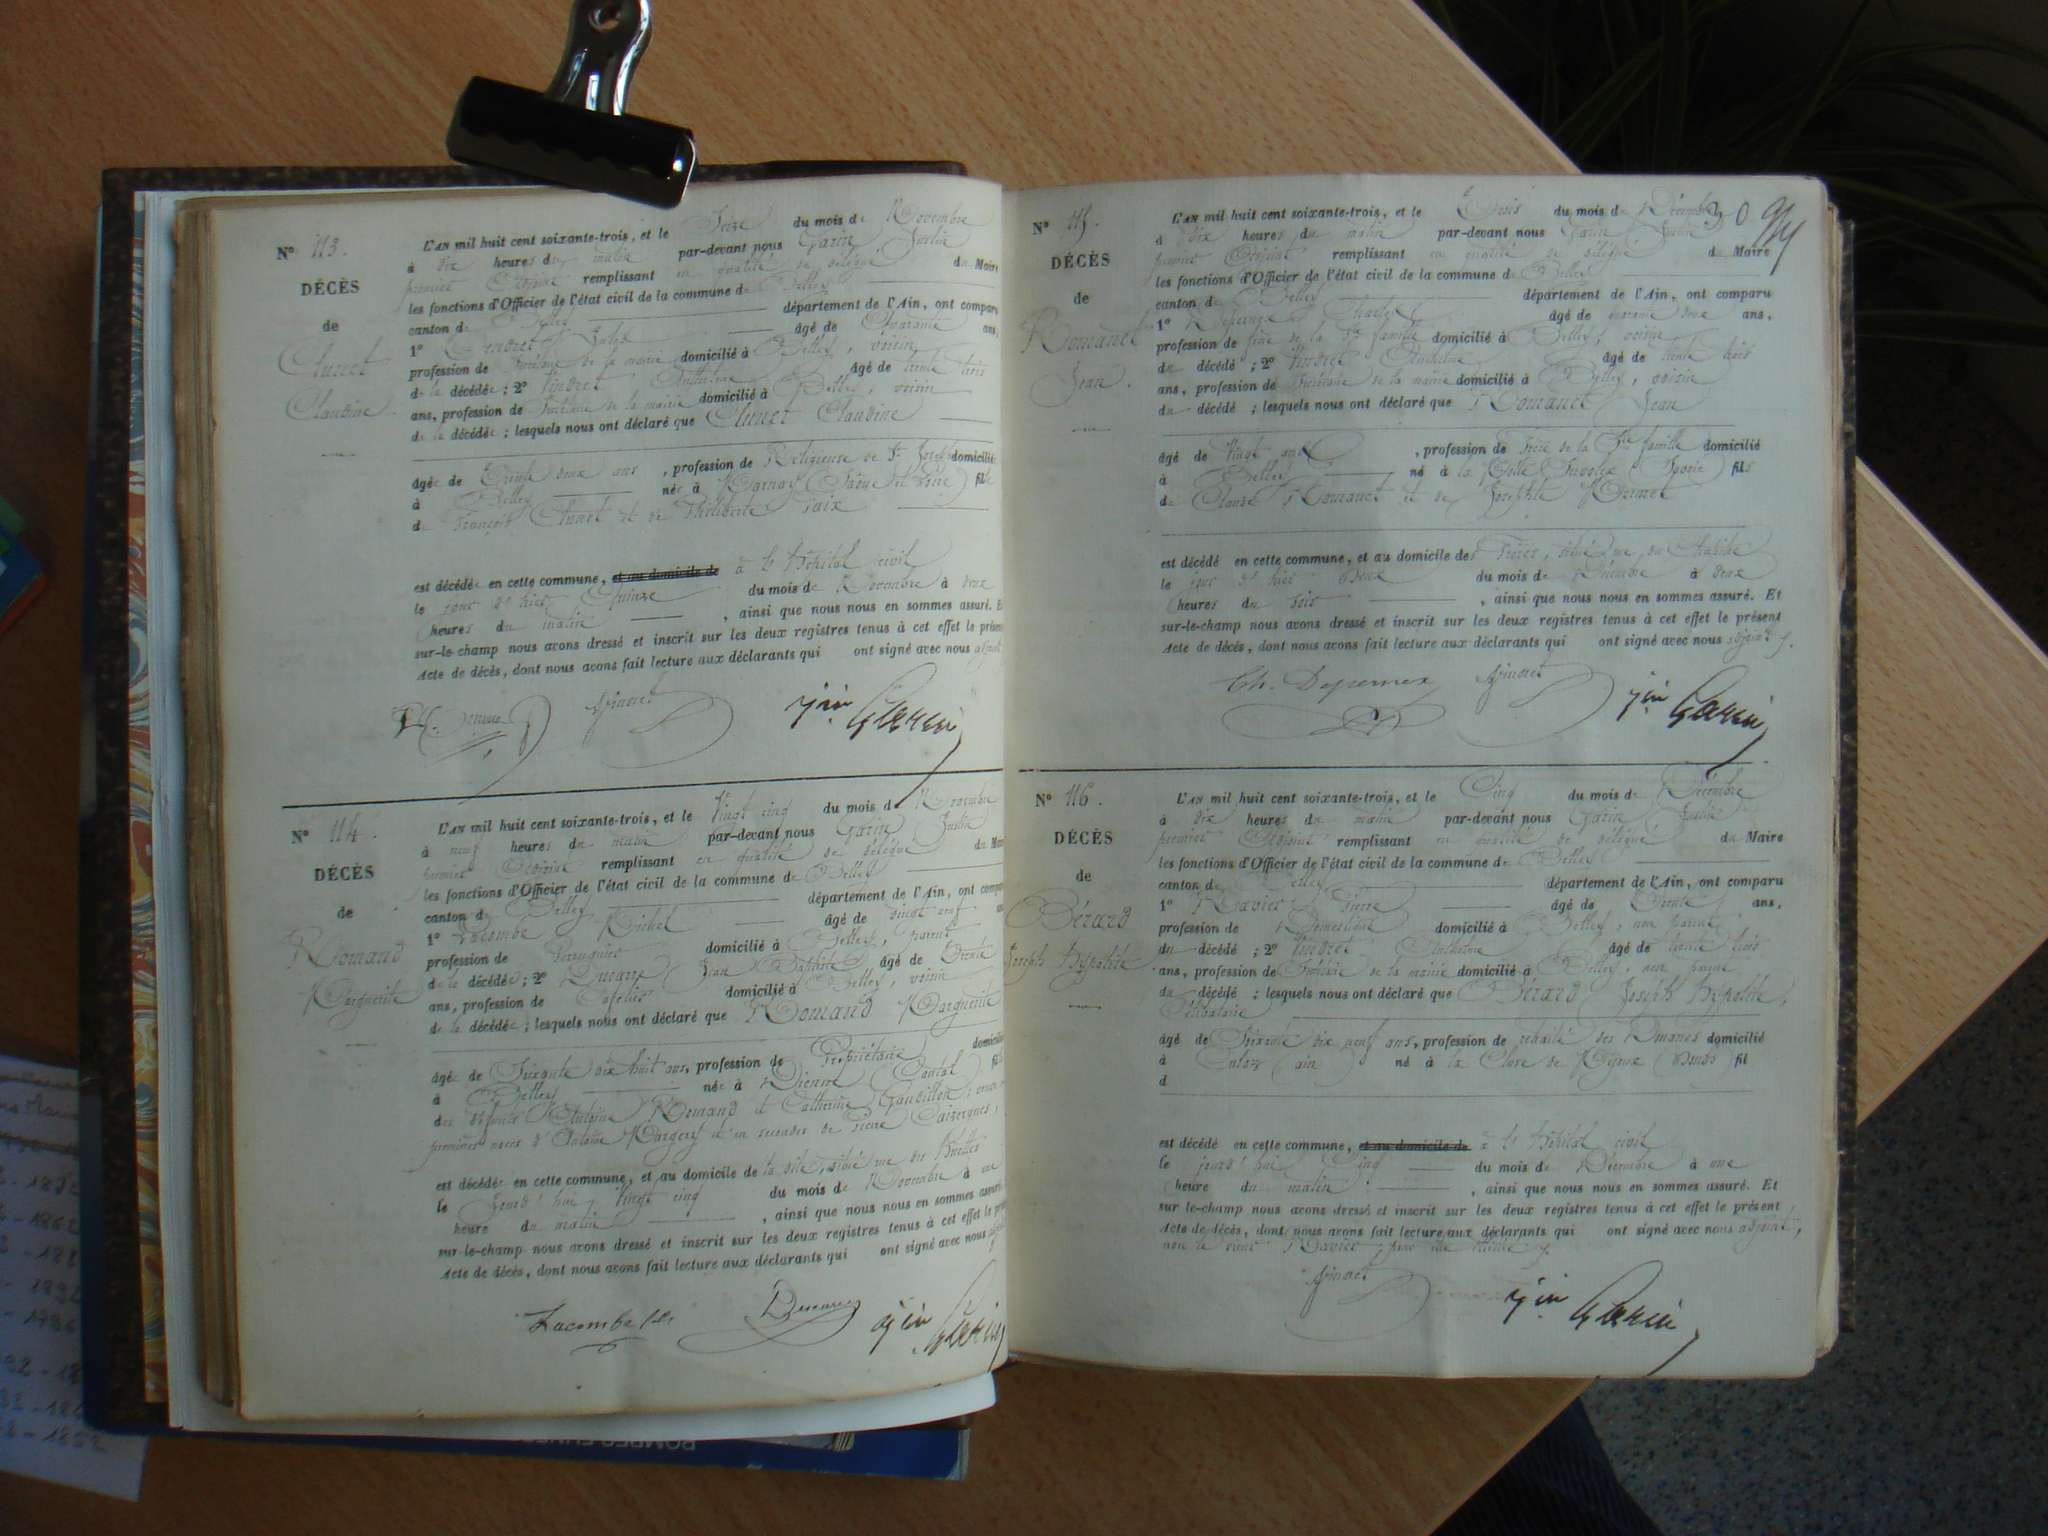 N° 113.
DÉCÈS
de
Clunet
Claudine
L'AN mil huit cent soixante-trois, et le Seize du mois de Novembre
à dix heures du matin par-devant nous Garin Justin
premier Adjoint remplissant en qualité de délégué du Maire
les fonctions d'Officier de l'état civil de la commune de Belley
canton de Belley département de l'Ain, ont comparu
1° Jules âgé de Quarante ans,
profession de Secrétaire de la mairie domicilié à Belley, voisin
de la décédée ; 2° Vindret Anthelme âgé de trente trois
ans, profession de Secrétaire de la mairie domicilié à Belley, voisin
de la décédée ; lesquels nous ont déclaré que Clunet Claudine
âgée de Trente deux ans, profession de Religieuse de St Joseph domiciliée
à Belley née à Marnay (Saône et Loire) fille
de François Clunet et de Philiberte
est décédée en cette commune, et au domicile de à l'hôpital civil
le jour d'hier Quinze du mois de Novembre à deux
heures du matin, ainsi que nous nous en sommes assuré. Et
sur-le-champ nous avons dressé et inscrit sur les deux registres tenus à cet effet le présent
Acte de décès, dont nous avons fait lecture aux déclarants qui ont signé avec nous adjoint
jin Garin
N° 114.
DÉCÈS
de
Romand
Marguerite
L'AN mil huit cent soixante-trois, et le Vingt cinq du mois de Novembre
à neuf heures du matin par-devant nous Garin Justin
premier Adjoint remplissant en qualité de délégué du Maire
les fonctions d'Officier de l'état civil de la commune de Belley
canton de Belley département de l'Ain, ont comparu
1° Lacombe Michel âgé de vingt neuf ans
profession de Perruquier domicilié à Belley, parent
de la décédée ; 2° Jean Baptiste âgé de Trente
ans, profession de domicilié à Belley, voisin
de la décédée ; lesquels nous ont déclaré que Romand Marguerite
âgée de Soixante dix huit ans, profession de Propriétaire domiciliée
à Belley née à Dienne (Cantal) fille
des défunts Antoine Romand et Catherine Gaudillon, veuve en
premières noces d'Antoine et en secondes de Pierre
est décédée en cette commune, et au domicile de la dite, situé rue des
le jourd'hui Vingt cinq du mois de Novembre à une
heure du matin, ainsi que nous nous en sommes assuré.
sur-le-champ nous avons dressé et inscrit sur les deux registres tenus à cet effet le présent
Acte de décès, dont nous avons fait lecture aux déclarants qui ont signé avec nous
Lacombe
jin Garin
N° 115.
DÉCÈS
de
Romanet
Jean.
L'AN mil huit cent soixante-trois, et le Trois du mois de Décembre
à dix heures du matin par-devant nous Garin Justin
premier Adjoint remplissant en qualité de délégué du Maire
les fonctions d'Officier de l'état civil de la commune de Belley
canton de Belley département de l'Ain, ont comparu
1° Depernex Charles âgé de quarante deux ans,
profession de frère de la Ste famille domicilié à Belley, voisin
du décédé ; 2° Vindret Anthelme âgé de trente trois
ans, profession de Secrétaire de la mairie domicilié à Belley, voisin
du décédé ; lesquels nous ont déclaré que Romanet Jean
âgé de Vingt ans, profession de Frère de la Ste famille domicilié
à Belley né à la Savoie fils
de Claude Romanet et de Josephte
est décédé en cette commune, et au domicile des Frères, situé rue du
le jour d'hier Deux du mois de Décembre à deux
heures du soir, ainsi que nous nous en sommes assuré. Et
sur-le-champ nous avons dressé et inscrit sur les deux registres tenus à cet effet le présent
Acte de décès, dont nous avons fait lecture aux déclarants qui ont signé avec nous adjoint.
Ch. Depernex Vindret jin Garin
N° 116.
DÉCÈS
de
Bérard
Joseph hypolite
L'AN mil huit cent soixante-trois, et le Cinq du mois de Décembre
à dix heures du matin par-devant nous Garin Justin
premier Adjoint remplissant en qualité de délégué du Maire
les fonctions d'Officier de l'état civil de la commune de Belley
canton de Belley département de l'Ain, ont comparu
1° Ravier Pierre âgé de Trente ans,
profession de Domestique domicilié à Belley, non parent
du décédé ; 2° Vindret Anthelme âgé de trente trois
ans, profession de Secrétaire de la mairie domicilié à Belley, non parent
du décédé ; lesquels nous ont déclaré que Bérard Joseph hypolite,
Célibataire
âgé de Soixante dix neuf ans, profession de retraité des Douanes domicilié
à (ain) né à la Cluse de Mijoux (Doubs) fil
d
est décédé en cette commune, et au domicile de à l'hôpital civil
le jourd'hui Cinq du mois de Décembre à une
heure du matin, ainsi que nous nous en sommes assuré. Et
sur le-champ nous avons dressé et inscrit sur les deux registres tenus à cet effet le présent
Acte de décès, dont nous avons fait lecture aux déclarants qui ont signé avec nous adjoint,
non le sieur Ravier pour être illitéré
Vindret jin Garin